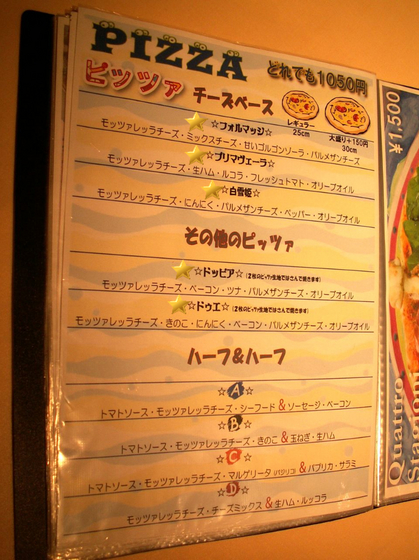 PIZZA
ピッツァ どれでも1050円
チーズベース
レギュラー 25cm
大盛り+150円 30cm
☆フォルマッジ☆
モッツァレッラチーズ・ミックスチーズ・甘いゴルゴンゾーラ・パルメザンチーズ
☆プリマヴェーラ☆
モッツァレッラチーズ・生ハム・ルコラ・フレッシュトマト・オリーブオイル
☆白雪姫☆
モッツァレッラチーズ・にんにく・パルメザンチーズ・ペッパー・オリーブオイル
その他のピッツァ
☆ドッピア☆(2枚のピッツァ生地ではさんで焼きます)
モッツァレッラチーズ・ベーコン・ツナ・パルメザンチーズ・オリーブオイル
☆ドゥエ☆(2枚のピッツァ生地ではさんで焼きます)
モッツァレッラチーズ・きのこ・にんにく・ベーコン・パルメザンチーズ・オリーブオイル
ハーフ&ハーフ
☆A☆
トマトソース・モッツァレッラチーズ・シーフード&ソーセージ・ベーコン
☆B☆
トマトソース・モッツァレッラチーズ・きのこ&玉ねぎ・生ハム
☆C☆
トマトソース・モッツァレッラチーズ・マルゲリータ(バジリコ)&パプリカ・サラミ
☆D☆
モッツァレッラチーズ・チーズミックス&生ハム・ルッコラ
¥1,500
Quattro